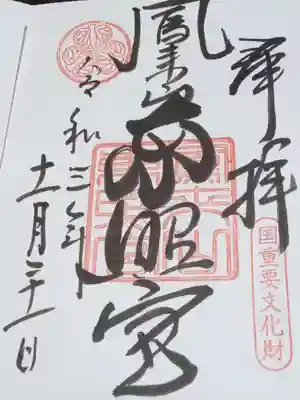 奉拝
国重要文化財
鳳来山東照宮
令和三年
十一月二十一日